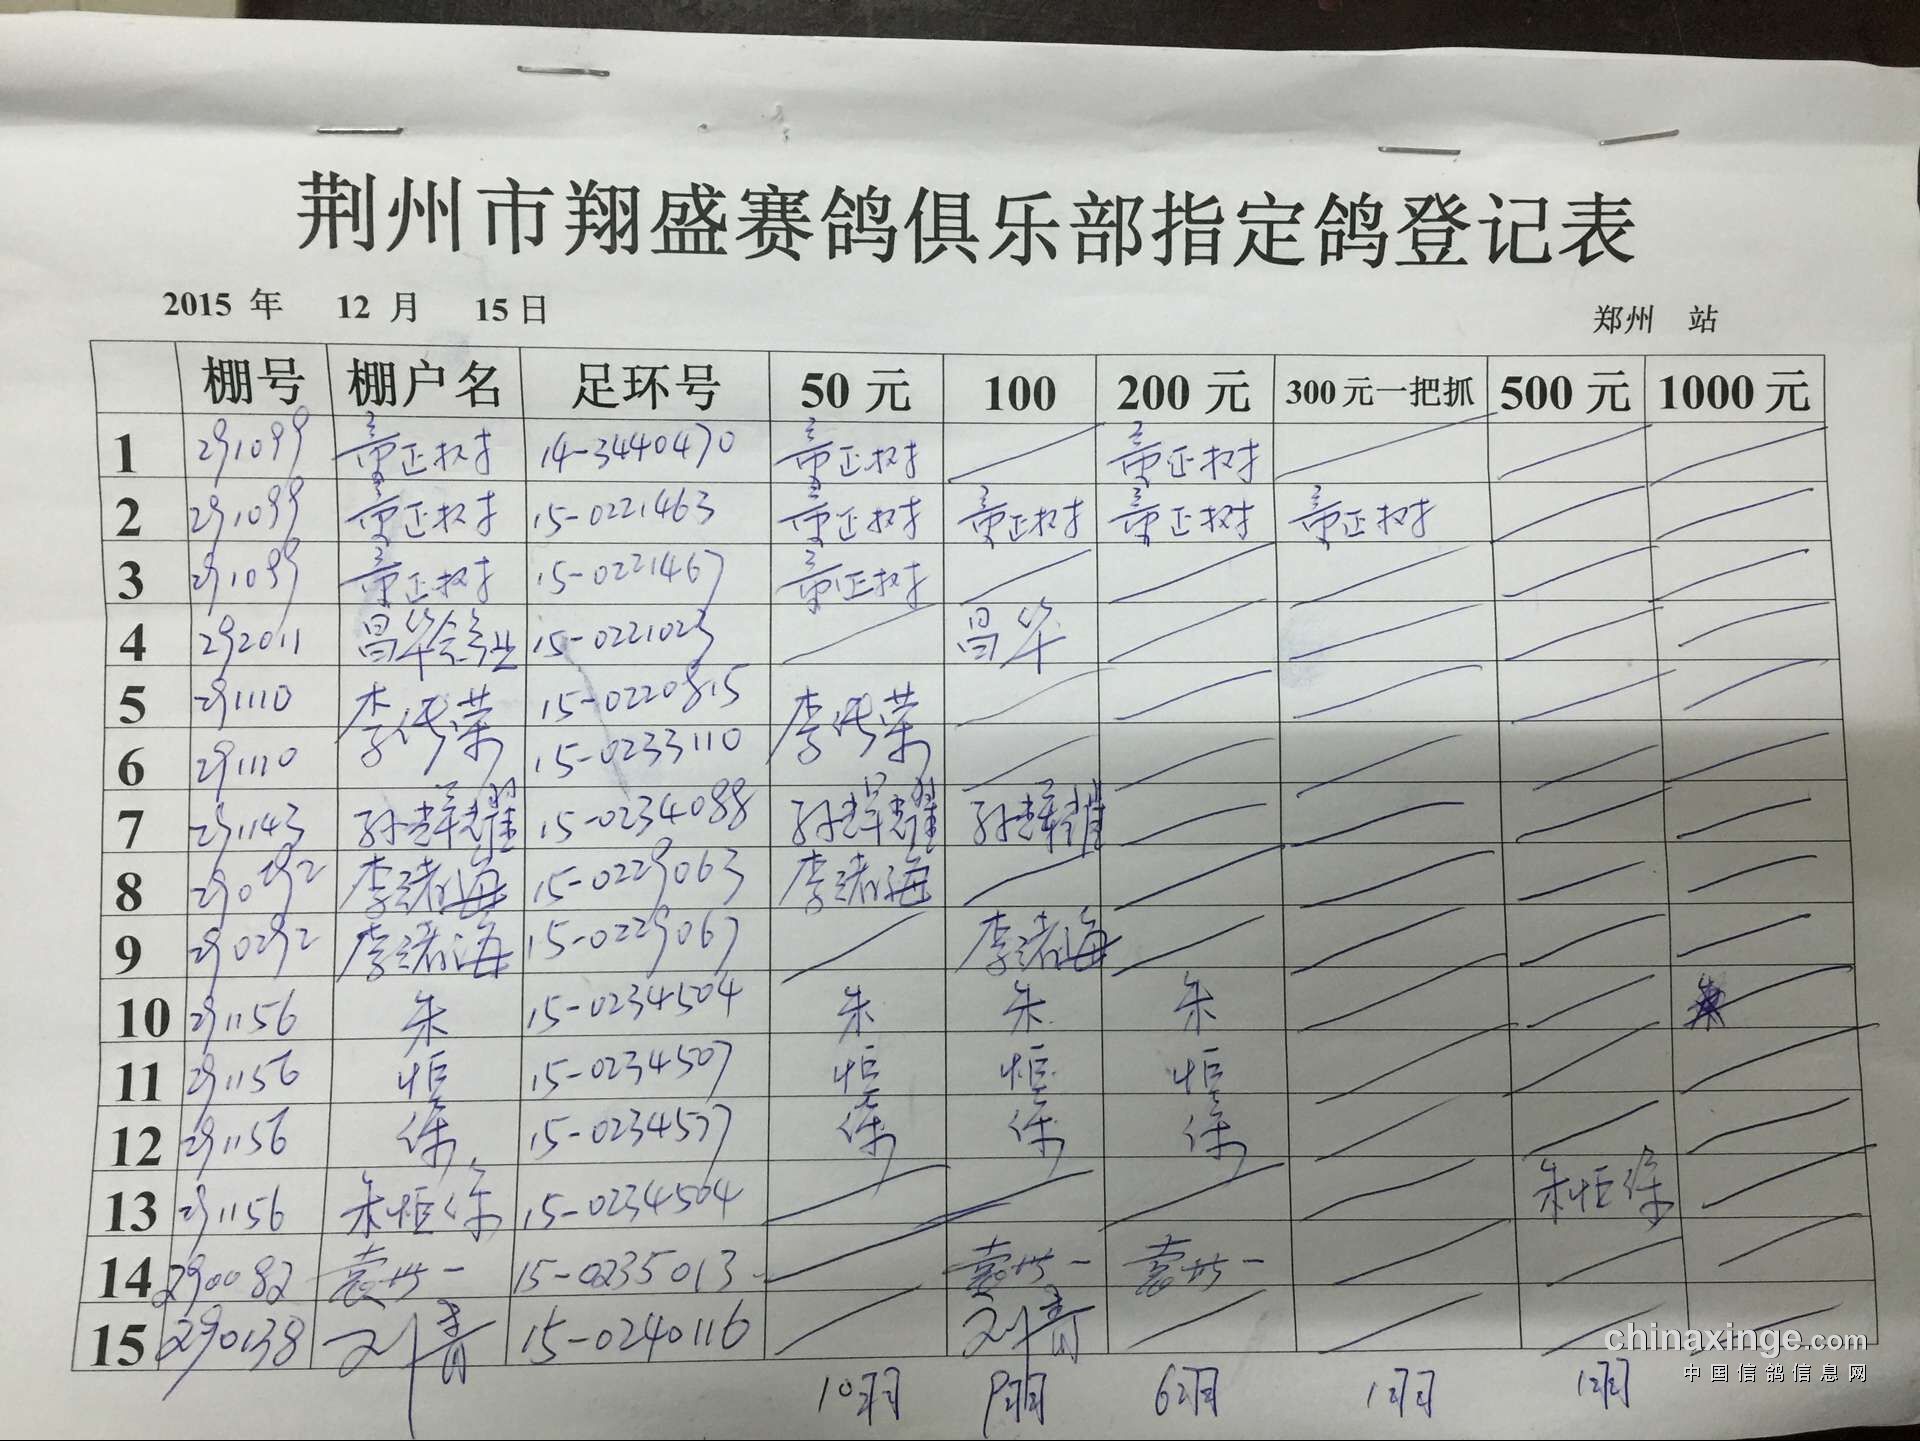 荆州市翔盛赛鸽俱乐部指定鸽登记表
2015 年 12 月 15日 郑州 站
棚号 棚户名 足环号 50 元 100 200 元 300 元一把抓 500 元 1000 元
1 291099 童正树 14-3440470 童正树 童正树
2 291099 童正树 15-0221463 童正树 童正树 童正树 童正树
3 291099 童正树 15-0221467 童正树
4 292011 昌华 15-0221023 昌华
5 291110 李传荣 15-0220815 李传荣
6 291110 15-0233110
7 291143 孙辉耀 15-0234088 孙辉耀 孙辉耀
8 290292 李绪海 15-0229063 李绪海
9 290292 李绪海 15-0229067 李绪海
10 291156 朱 15-0234504 朱 朱 朱
11 291156 恒 15-0234507 恒 恒 恒
12 291156 保 15-0234577 保 保 保
13 291156 朱恒保 15-0234504 朱恒保
14 290082 袁世一 15-0235013 袁世一 袁世一
15 290138 刘青 15-0240116 刘青
10羽 9羽 6羽 1羽 1羽
chinaxinge.com
中国信鸽信息网